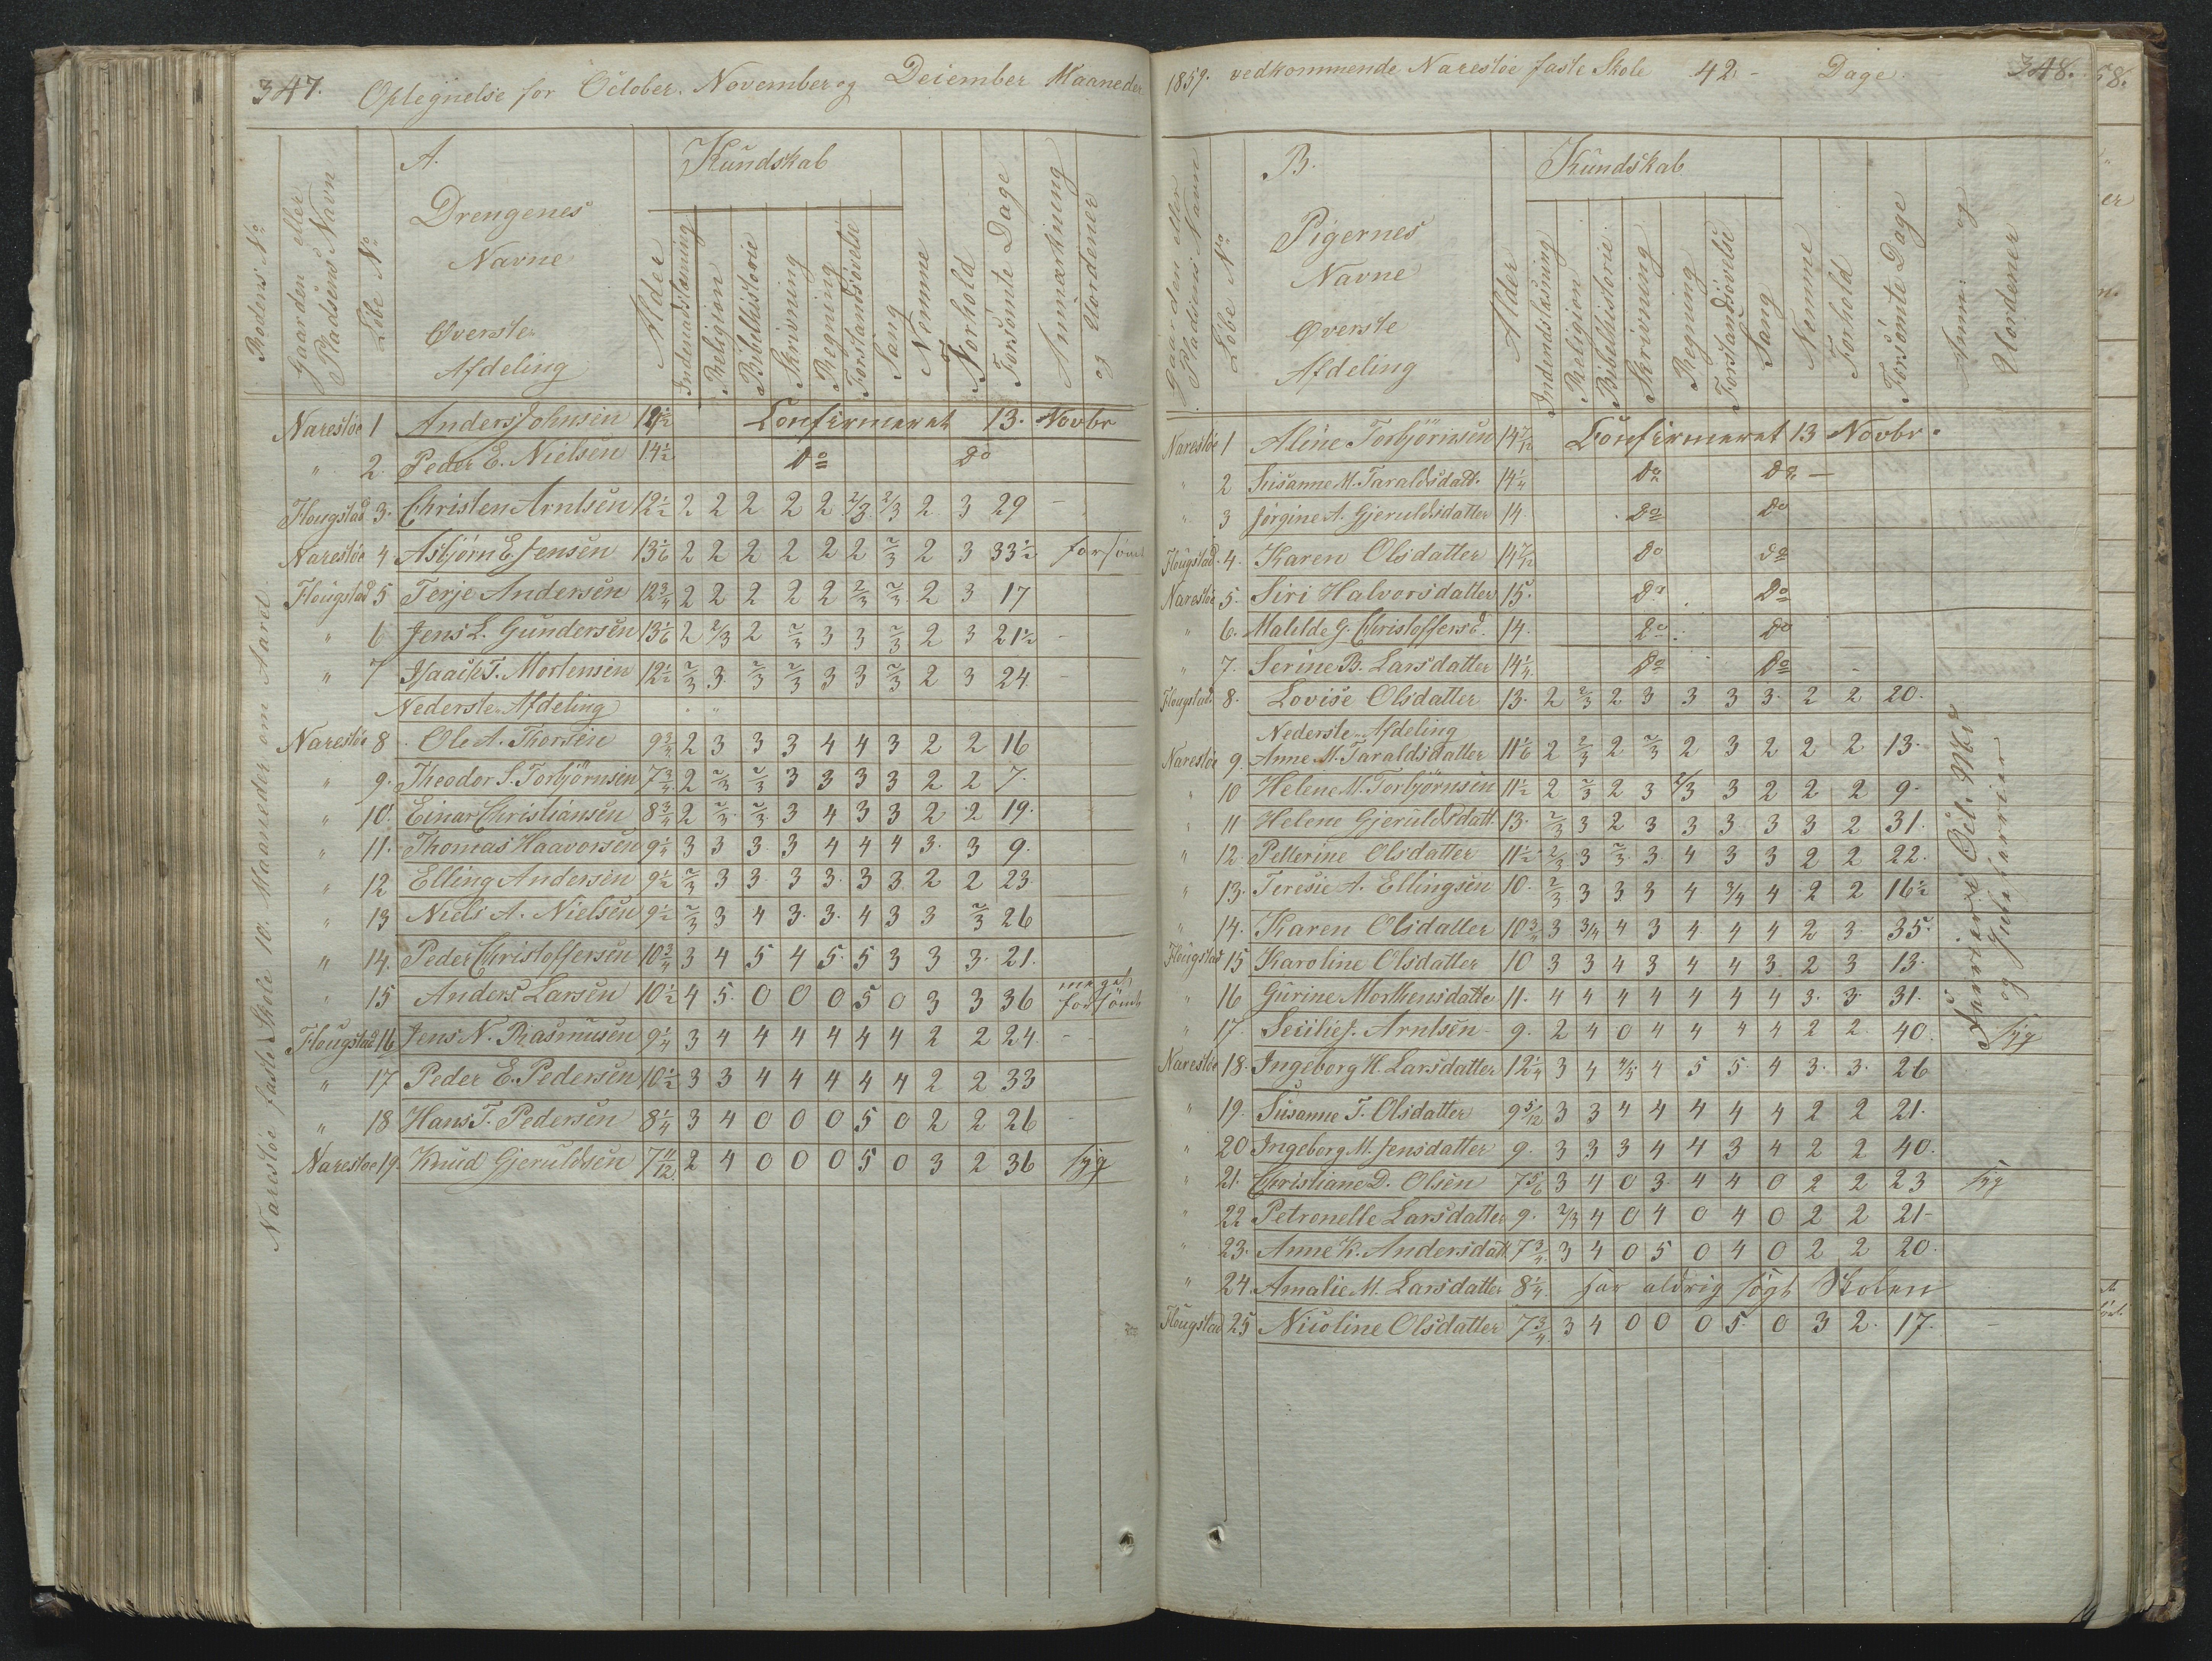 347. Optegnelse for October, November og December Maaneder
Rodens No
Gaarden eller Pladsens Navn
Löbe No
A. Drengenes Navne Øverste Afdeling
Alder
Kundskab
Indenadslæsning
Religion
Bibelhistorie
Skrivning
Regning
Forstandsövelse
Sang
Nemme
Forhold
Forsömte Dage
Anmærkning og Uordener
Narestöe faste Skole 10. Maaneder om Aaret.
Narestöe 1 Anders Johnsen Confirmeret 13. Novbr
" 2. Peder E. Nielsen 14½ Do Do
Flougstad 3. Christen Arntsen 12½ 2 2 2 2 2 2/3 2/3 2 3 29 -
Narestöe 4 Asbjörn E Jensen 13 1/6 2 2 2 2 2 2 2/3 2 3 33½ forsömt
Flougstad 5 Terje Andersen 12¾ 2 2 2 2 2 2/3 2/3 2 3 17
" 6 Jens L. Gundersen 13 1/6 2 2/3 2 2/3 3 3 2/3 2 3 21½ -
" 7 Isaack T. Mortensen 12½ 2/3 3 2/3 2/3 3 3 2/3 2 3 24 -
Nederste Afdeling
Narestöe 8 Ole A. Thorsen 9¾ 2 3 3 3 4 4 3 2 2 16
" 9. Theodor S. Torbjörnsen 7¾ 2 2/3 2/3 3 3 3 3 2 2 7.
" 10. Einar Christiansen 8¾ 2 2/3 2/3 3 4 3 3 2 2 19.
" 11. Thomas Haavorsen 9¼ 3 3 3 3 4 4 4 3. 3 9.
" 12 Elling Andersen 9½ 2/3 3 3 3 3. 3 3 2 2 23
" 13 Niels A. Nielsen 9½ 2/3 3 4 3. 3. 4 3 3 2/3 26
" 14. Peder Christoffersen 10¾ 3 4 5 4 5. 5 3 3 3. 21.
" 15 Anders Larsen 10½ 4 5. 0 0 0 5 0 3 3 36 meget forsömt
Flougstad 16 Jens N. Rasmusen 9¼ 3 4 4 4 4 4 4 2 2 24 - -
" 17 Peder E. Pedersen 10½ 3 3 4 4 4 4 4 2 2 33
" 18 Hans T. Pedersen 8¼ 3 4 0 0 0 5 0 2 2 26 -
Narestöe 19. Knud Gjeruldsen 7 11/12 2 4 0 0 0 5 0 3 2 36 syg
1859. vedkommende Narestöe faste Skole 42 - Dage. 348.
Gaarden eller Pladsens Navn
Löbe No
B. Pigernes Navne Øverste Afdeling
Alder
Kundskab
Indenadslæsning
Religion
Bibelhistorie.
Skrivning
Regning
Forstandsövelse
Sang
Nemme
Forhold
Forsömte Dage
Anm: og Uordener
Narestöe 1 Aline Torbjörnsen 14 7/12 Confirmeret 13 Novbr.
" 2 Susanne M. Taraldsdatt. 14¼ Do Do -
" 3 Jörgine A. Gjeruldsdatter 14. Do Do
Flougstad. 4. Karen Olsdatter 14 7/12 Do Do
Narestöe 5. Siri Halvorsdatter 15. Do Do
" 6. Matilde G. Christoffersd. 14. Do Do
" 7. Serine B. Larsdatter 14¼. Do Do
Flougstad 8. Lovise Olsdatter 13. 2 2/3 2 3 3 3 3. 2 2 20.
Nederste Afdeling
Narestöe 9. Anne M. Taraldsdatter 11 1/6 2 2/3 2 2/3 2 3 2 2 2 13.
" 10 Helene M. Torbjörnsen 11½ 2 2/3 2 3 2/3 3 2 2 2 9-
" 11 Helene Gjeruldsdatt. 13. 2/3 3 2 3 3 3 3 3 2 31.
" 12. Petterine Olsdatter 11½ 2/3 3 2/3 3. 4 3 3 2 2 22.
" 13. Teresie A. Ellingsen 10. 2/3 3 3 3 4 3/4 4 2 2 16½
" 14. Karen Olsdatter 10¾ 3 3/4 4 3 4 4 4 2 3. 35.
Flougstad 15 Karoline Olsdatter 10 3 3 4 3 4 4 3 2 3 13.
" 16 Gurine Morthensdatte 11. 4 4 4 4 4 4 4 3. 3. 31.
" 17. Secilie J. Arntsen 9. 2 4 0 4 4 4 4 2 2 40 syg
Narestöe 18. Ingeborg H. Larsdatter 12¼ 3 4 4/5 4 5 5. 4 3. 3. 26
" 19. Susanne T. Olsdatter 9 5/12 3 3 4 4 4 4 4 2 2 21.
" 20 Ingeborg M. Jensdatter 9. 3 3 3 4 4 3 4 2 2 40.
" 21. Christiane D. Olsen 7 5/6 3 4 0 3. 4 4 0 2 2 23 syg
" 22 Petronelle Larsdatter 9. 2/3 4 0 4 0 4 0 2 2 21-
" 23. Anne K. Andersdatt. 7¾ 3 4 0 5 0 4 0 2 2 20.
" 24. Amalie M. Larsdatter 8¼. har aldrig sögt Skolen
Flougstad 25 Nicoline Olsdatter 7¾ 3 4 0 0 0 5. 0 3 2. 17. -
og